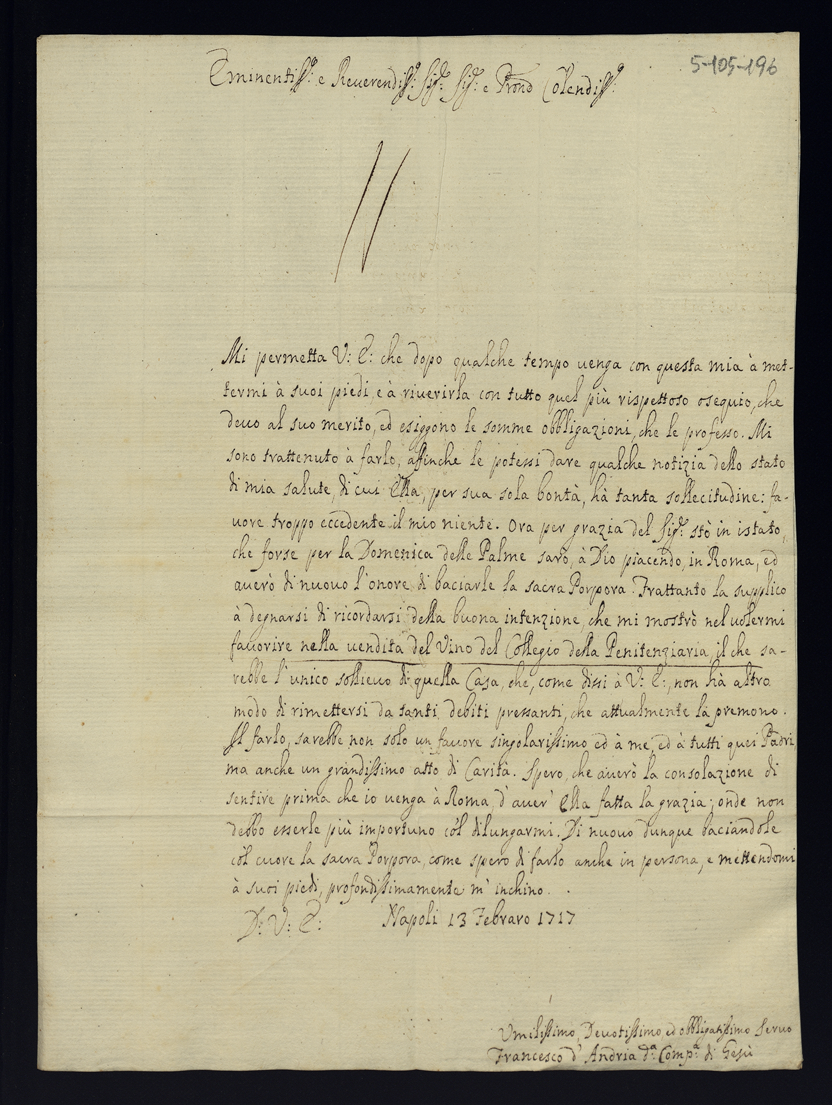 5-105-196
Eminentiss.º e Reuerendiss.º Sig.r Sig.r e Prone Colendiss.º
Mi permetta V: E: che dopo qualche tempo uenga con questa mia à met-
termi à suoi piedi, e à riuerirla con tutto quel più rispettoso ossequio, che
deuo al suo merito, ed esiggono le somme obbligazioni, che le professo. Mi
sono trattenuto à farlo, affinche le potessi dare qualche notizia dello stato
di mia salute, di cui Ella, per sua sola bontà, hà tanta sollecitudine: fa-
uore troppo eccedente il mio niente. Ora per grazia del Sig.r stò in istato,
che forse per la Domenica delle Palme sarò, à Dio piacendo, in Roma, ed
auerò di nuouo l'onore di baciarle la sacra Porpora. Frattanto la supplico
à degnarsi di ricordarsi della buona intenzione, che mi mostrò nel uolermi
fauorire nella uendita del Vino del Collegio della Penitenziaria, il che sa-
rebbe l'unico sollieuo di quella Casa, che, come dissi à V: E:, non hà altro
modo di rimettersi da tanti debiti pressanti, che attualmente la premono.
Il farlo, sarebbe non solo un fauore singolarissimo ed à me, ed à tutti quei Padri
ma anche un grandissimo atto di Carità. Spero, che auerò la consolazione di
sentire prima che io uenga à Roma, d'auer' Ella fatta la grazia; onde non
debbo esserle più importuno cól dilungarmi. Di nuouo dunque baciandole
cól cuore la sacra Porpora, come spero di farlo anche in persona, e mettendomi
à suoi piedi, profondissimamente m'inchino.
D: V: E: Napoli 13 Febraro 1717
Vmilissimo, Deuotissimo, ed obbligatissimo Seruo
Francesco d'Andria d.a Comp.a di Gesù